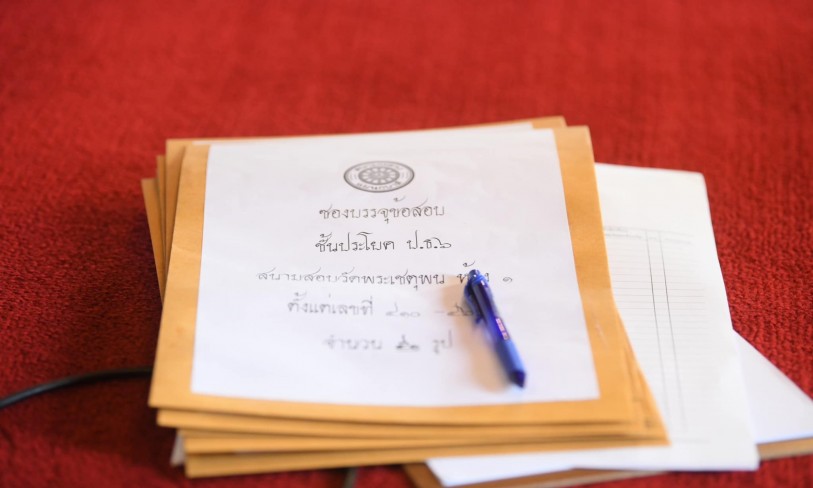 ซองบรรจุข้อสอบ
ชั้นประโยค ป.ธ.๖
สนามสอบวัดพระเชตุพน ๑
ตั้งแต่เลขที่
จำนวน รูป